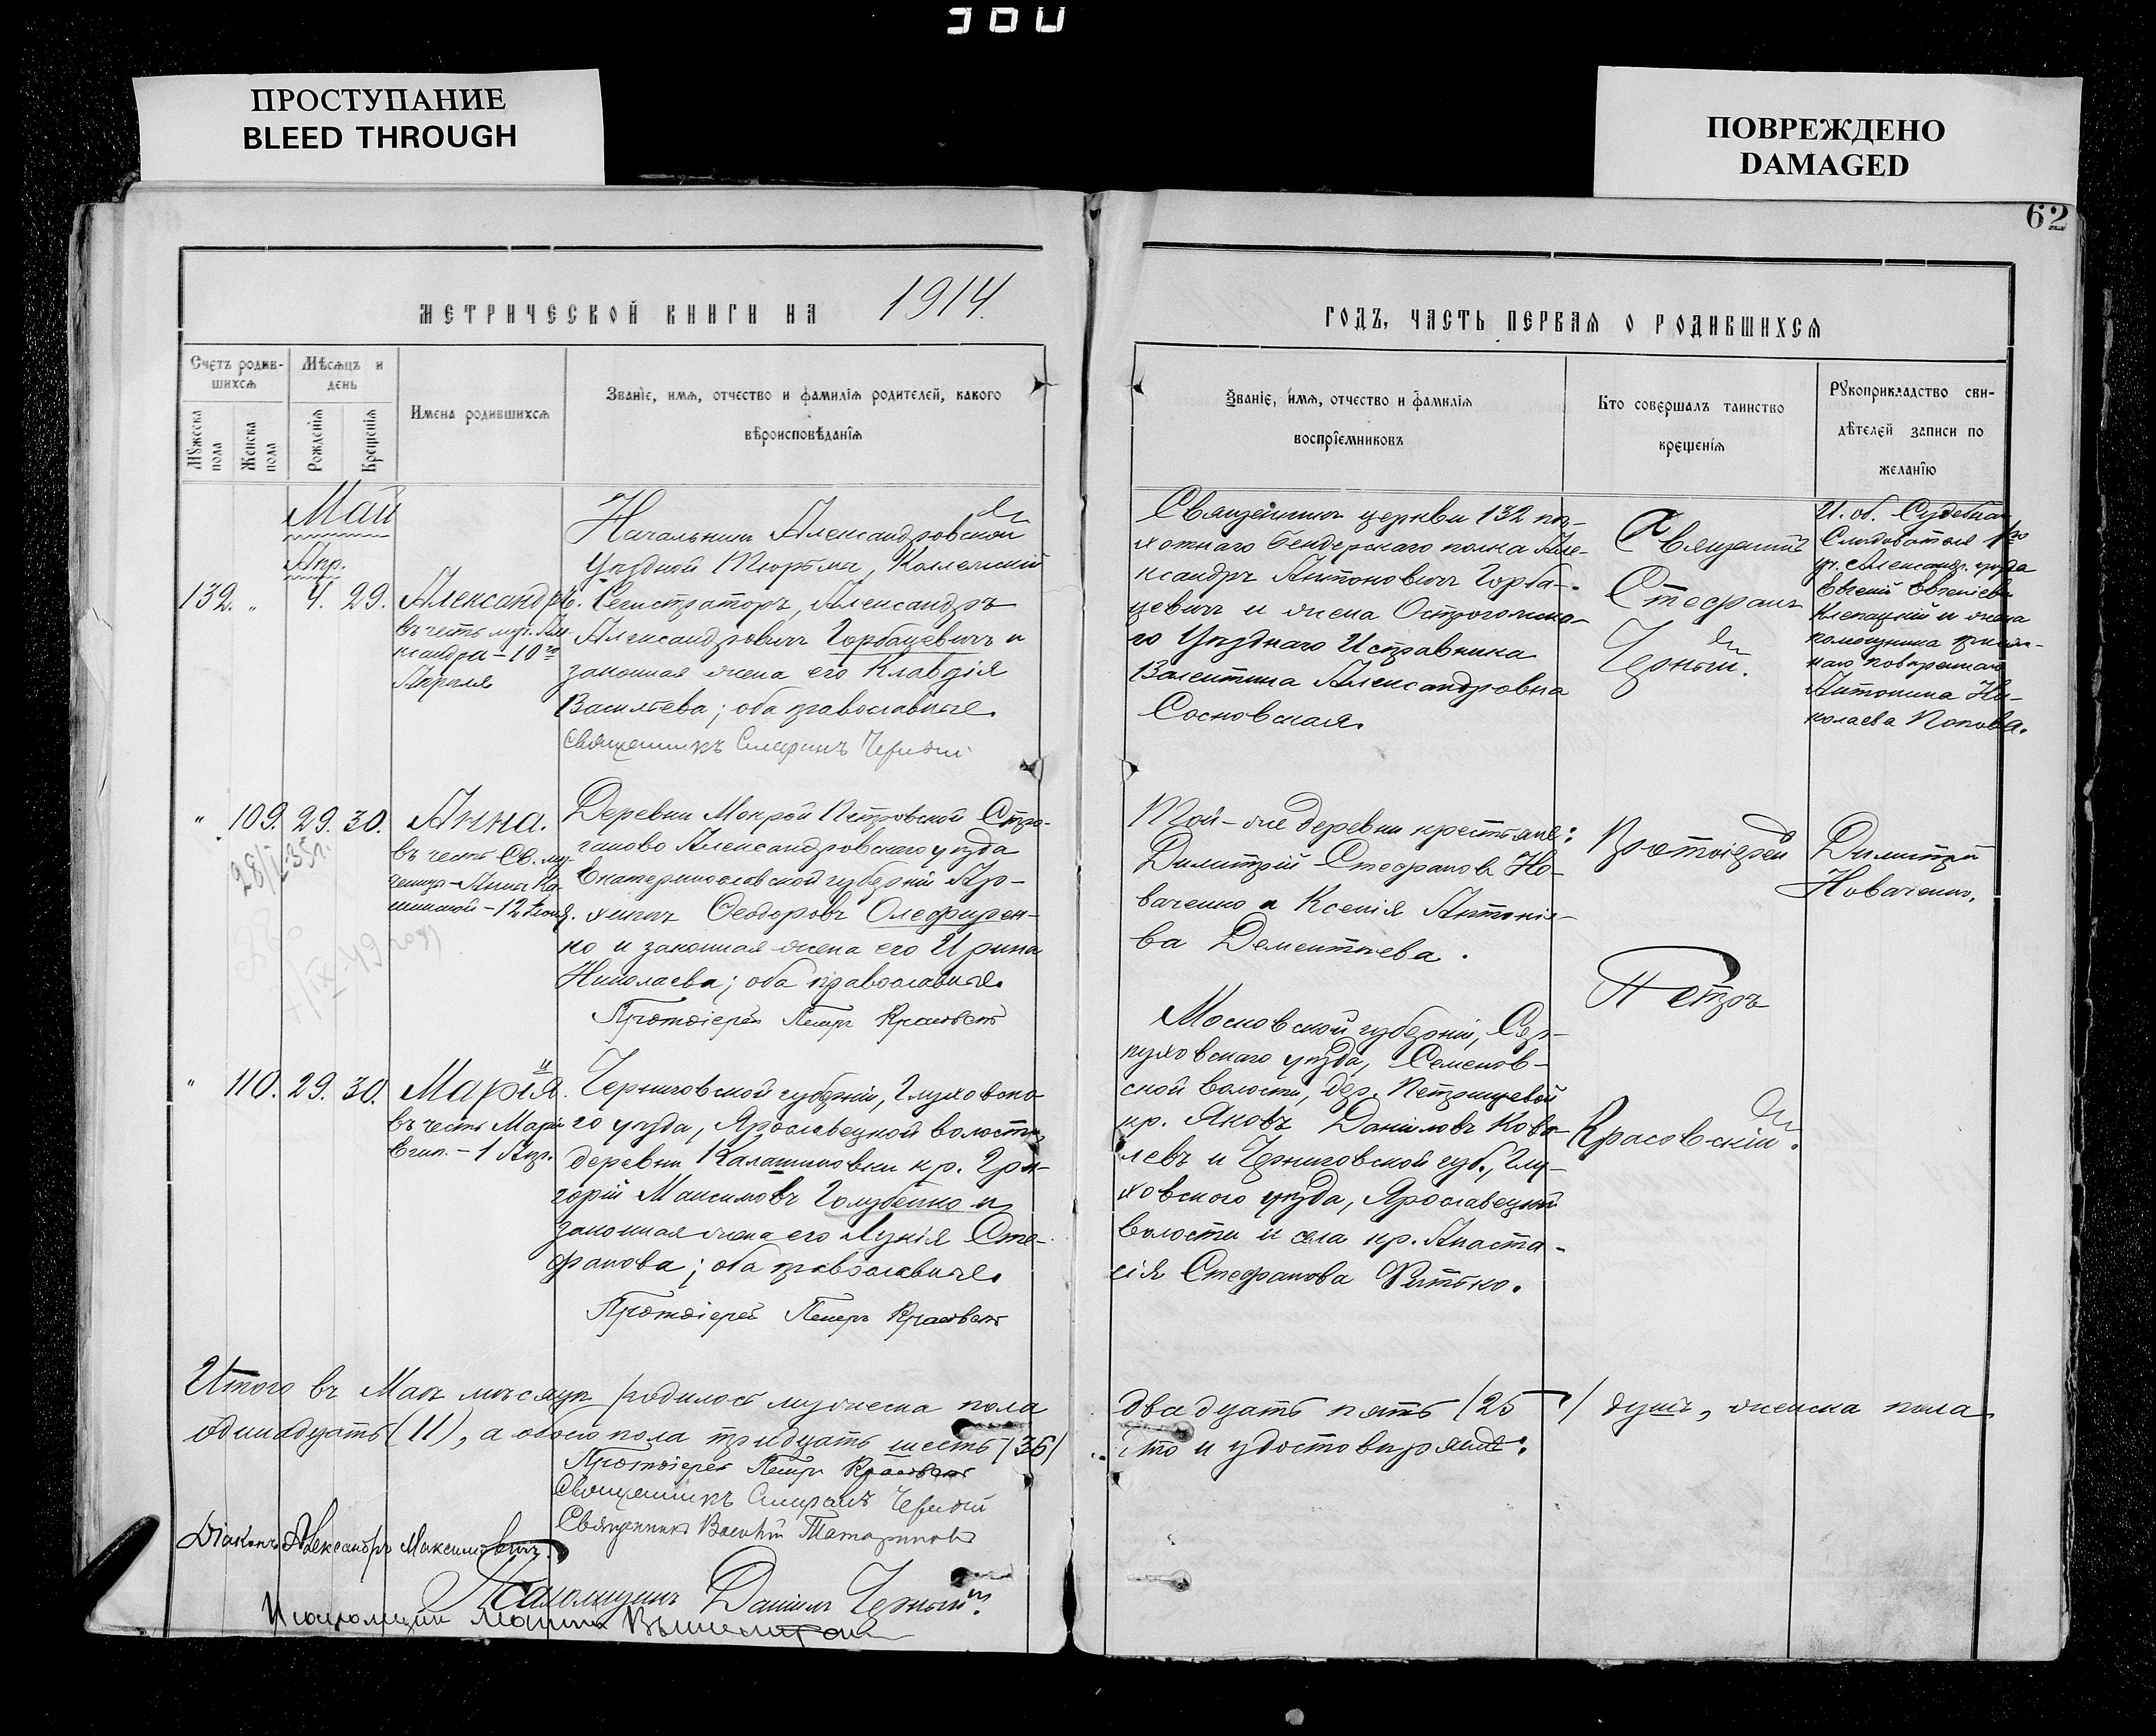 300
ПРОСТУПАНИЕ
BLEED THROUGH
ПОВРЕЖДЕНО
DAMAGED
62
МЕТРИЧЕСКОЙ КНИГИ НА 1914.
Счетъ родив-
шихся
Мѣсяцъ и
день
Мужеска пола
Женска пола
Рожденія
Крещенія
Имена родившихся
Званіе, имя, отчество и фамилія родителей, какого
вѣроисповѣданія
Май
Апр.
132. " 4. 29.
Александръ.
въ честь муч. Але-
ксандра – 10го
Апрѣля
Начальникъ Александровской
Уѣздной Тюрьмы, Коллежскій
Регистраторъ, Александръ
Александровичъ Горбацевичъ и
законная жена его Клавдія
Васильева; оба православные.
Священникъ Стефанъ Черный
" 109. 29. 30.
28/I 35г.
Анна.
въ честь Св. му-
ченицы – Анны Ка-
шинской – 12 Іюня.
Деревни Мокрой Петровской Стро-
ганово Александровскаго уѣзда
Екатеринославской губерніи Ар-
хипъ Ѳеодоровъ Олефирен-
ко и законная жена его Ирина
Николаева; оба православные.
Протоіерей Петръ Красовскій
" 110. 29. 30.
Марія.
въ честь Маріи
Егип. – 1 Апр.
Черниговской губерніи, Глуховска-
го уѣзда, Ярославецкой волости,
деревни Калашиновки кр. Гри-
горій Максимовъ Голубенко и
законная жена его Лукія Сте-
фанова; оба православные.
Протоіерей Петръ Красовскій
Итого въ Маѣ мѣсяцѣ родилось мужеска пола
одинадцать (11), а обоего пола тридцать шесть (36)
Протоіерей Петръ Красовскій
Священникъ Стефанъ Черный
Священникъ Василій Татариновъ
Діаконъ Александръ Максимовичъ.
Псаломщикъ Даніилъ Черный.
Псаломщик
ГОДЪ, ЧАСТЬ ПЕРВАЯ О РОДИВШИХСЯ
Званіе, имя, отчество и фамилія
воспріемниковъ
Кто совершалъ таинство
крещенія
Рукоприкладство сви-
дѣтелей записи по
желанію
Священникъ церкви 132 пѣ-
хотнаго Бендерскаго полка Але-
ксандръ Антоновичъ Горба-
цевичъ и жена Острогожска-
го Уѣзднаго Исправника
Валентина Александровна
Сосновская.
Священникъ
Стефанъ
Черный.
И. об. Судебнаго
Слѣдователя 1го
уч. Александр. уѣзда
Евгеній Евгеніевъ
Клепацкій и жена
помощника присяж-
наго повѣреннаго
Антонина Ни-
колаева Попова.
Той-же деревни крестьяне:
Димитрій Стефановъ Но-
ваченко и Ксенія Антоніе-
ва Дементьева.
Протоіерей
Петръ
Красовскій.
Димитрій
Новаченко.
Московской губерніи, Сер-
пуховскаго уѣзда, Семенов-
ской волости, дер. Петрищевой
кр. Яковъ Даниловъ Кова-
левъ и Черниговской губ., Глу-
ховскаго уѣзда, Ярославецкой
волости и села кр. Анаста-
сія Стефанова Фитько.
двадцать пять (25) душъ, женска пола
что и удостовѣряемъ: